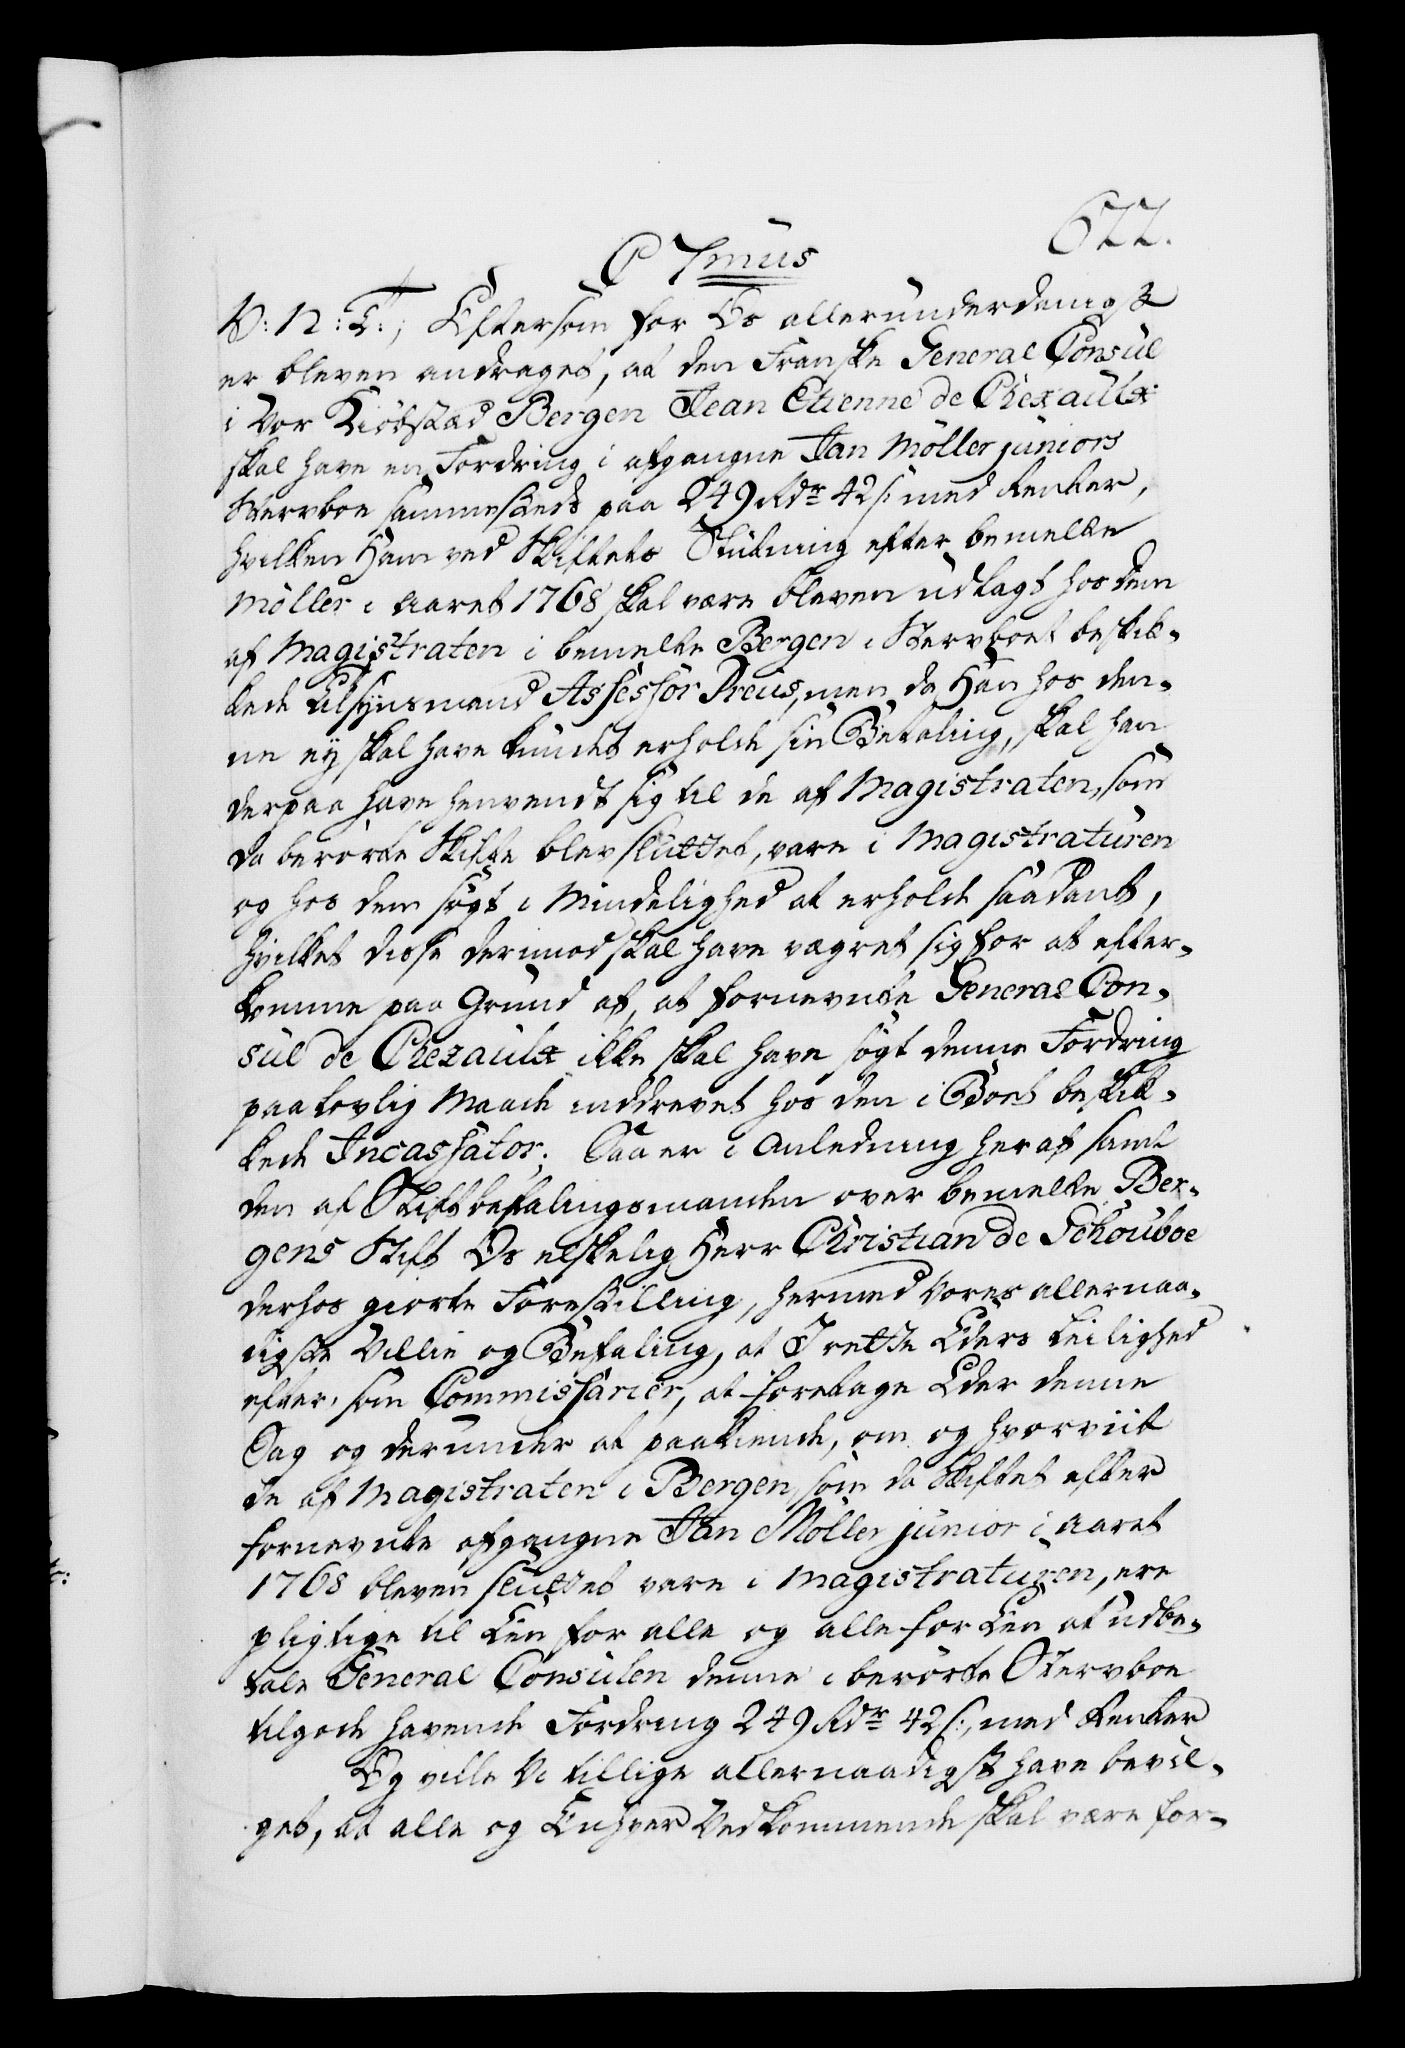 622.
C 7mus
V: N: T:, Eftersom for Os allerunderdanigst
er bleven andraget, at den Franske General Consul
i Vor Kiöbstad Bergen Jean Etienne de Chezaulx
skal have en Fordring i afgangne Jan Möller juniors
Stervboe sammesteds paa 249 Rdr 42 s: med Renter,
hvilken Ham ved Skiftets Slutning efter bemelte
Möller i Aaret 1768 skal være bleven udlagt hos den
af Magistraten i bemelte Bergen i Stervboet beskik-
kede Tilsynsmand Assessor Preus, men da Han hos den-
ne ey skal have kundet erholde sin Betaling, skal han
derpaa have henvendt sig til de af Magistraten, som
da berörte Skifte blev sluttet, vare i Magistraturen
og hos dem sögt i Mindelighed at erholde saadant,
hvilket disse derimod skal have vægret sig for at efter-
komme paa Grund af, at fornevnte General Con-
sul de Chezaulx ikke skal have sögt denne Fordring
paa lovlig Maade inddrevet hos den i Boet beskik-
kede Incassator; Saa er i Anledning heraf samt
den af Stiftbefalingsmanden over bemelte Ber-
gens Stift Os elskelig Herr Christian de Schouboe
derhos giorte Forestilling, hermed Vores allernaa-
digste Villie og Befaling, at I rette Eders Leilighed
efter, som Commissarier, at foretage Eder denne
Sag og derunder at paakiende, om og hvorviit
de af Magistraten i Bergen, som da Skiftet efter
fornevnte afgangne Jan Möller junior i Aaret
1768 bleven sluttet vare i Magistraturen, ere
pligtige til Een for alle og alle for Een at udbe-
tale General Consulen denne i berörte Stervboe
tilgode havende Fordring 249 Rdr 42 s:, med Renter
Og ville Vi tillige allernaadigst have bevil-
get, at alle og Enhver Vedkommende skal være for-